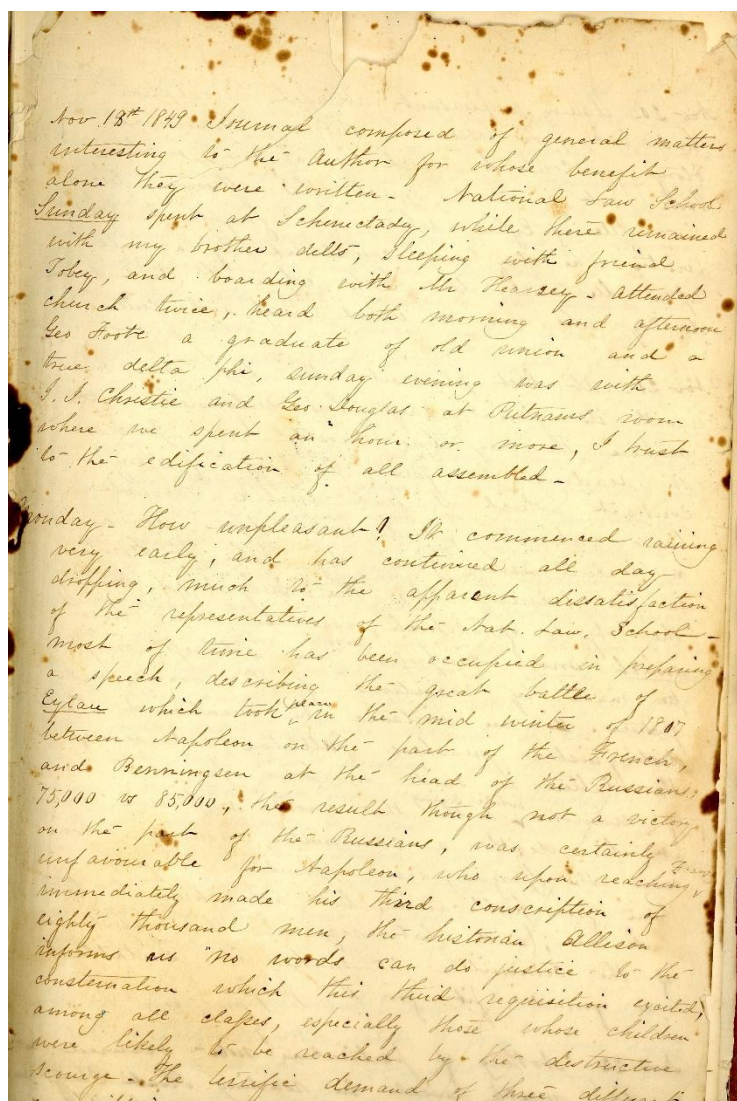 Nov. 18th 1849 Journal composed of general matters
interesting to the Author for whose benefit
alone they were written - National Law School
Sunday spent at Schenectady, while there remained
with my brother delts, sleeping with friend
Tobey, and boarding with Mr Hearsey - attended
church twice, heard both morning and afternoon
Geo Foote a graduate of old union and a
true delta phi, sunday evening was with
J. J. Christie and Geo. Douglas at Putnams room
where we spent an hour or more, I trust
to the edification of all assembled -
Monday - How unpleasant! It commenced raining
very early, and has continued all day
dropping, much to the apparent dissatisfaction
of the representatives of the Nat. Law. School -
most of time has been occupied in preparing
a speech, describing the great battle of
Eylau which took place in the mid winter of 1807
between Napoleon on the part of the French,
and Benningsen at the head of the Russians,
75,000 vs 85,000, the result though not a victory
on the part of the Russians, was certainly
unfavourable for Napoleon, who upon reaching
immediately made his third conscription of
eighty thousand men, the historian Allison
informs us "no words can do justice to the
consternation which this third requisition excited,
among all classes, especially those whose children
were likely to be reached by the destructive
scourge - The terrific demand of three